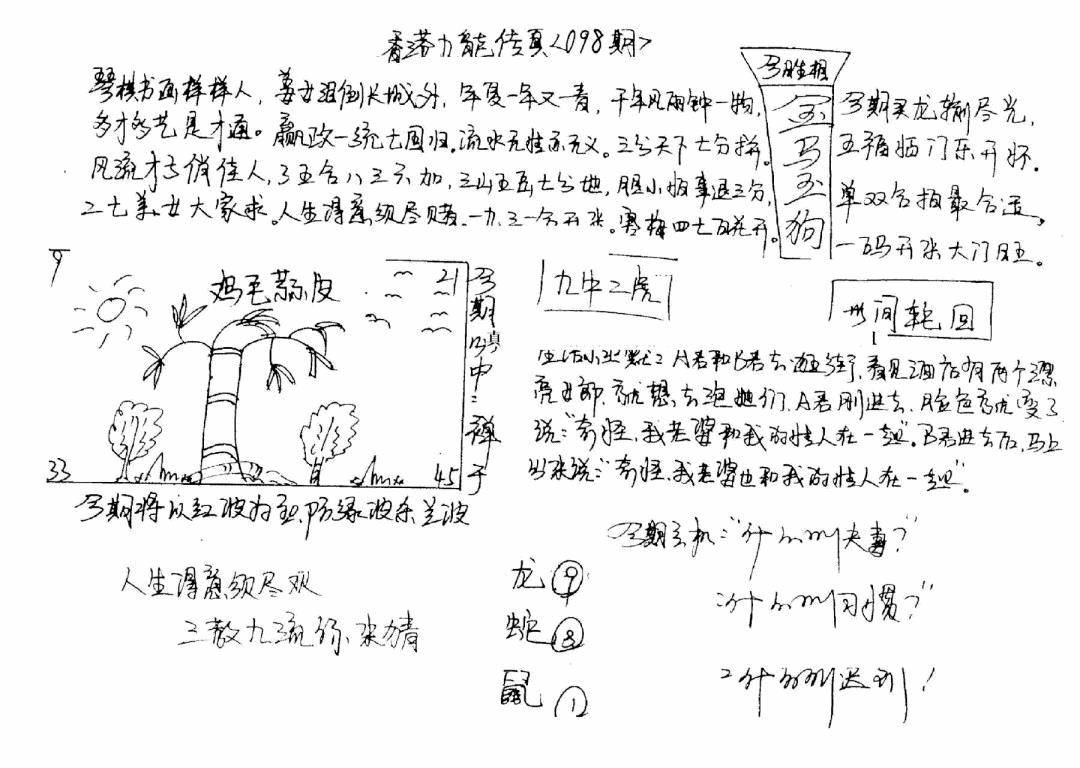 香港功能传真<098期>
琴棋书画样样人，姜女泪倒长城外，年复一年又一春，千年风雨钟一物，
多才多艺是才通。嬴政一统七国归。流水无性亦无义。三分天下七分拚。
风流才子俏佳人，了五合八三不加，三山五岳七分地，胆小怕事退三分，
二七美女大家求。人生得意须尽赌。一九三一合开张。寒梅四七百花开。
今胜相
金马玉狗
今期买龙输尽光，
五福临门乐开怀。
单双合拍最合适，
一码开张大门旺。
9
鸡毛蒜皮
21
33
45
今期填中：禅于
九中二虎
世间轮回
生活小幽默：A君和B君去逛街，看见酒店有两个漂
亮女郎，就想去泡她们，A君刚进去，脸色就变了
说："奇怪，我老婆和我的情人在一起"。B君进去后，马上
出来说："奇怪，我老婆也和我的情人在一起"。
今期将以红波为主，防绿波杀兰波
人生得意须尽欢
三教九流你来猜
龙 ⑨
蛇 ⑧
鼠 ①
今期玄机："什么叫夫妻？"
什么叫习惯？"
什么叫迟到！